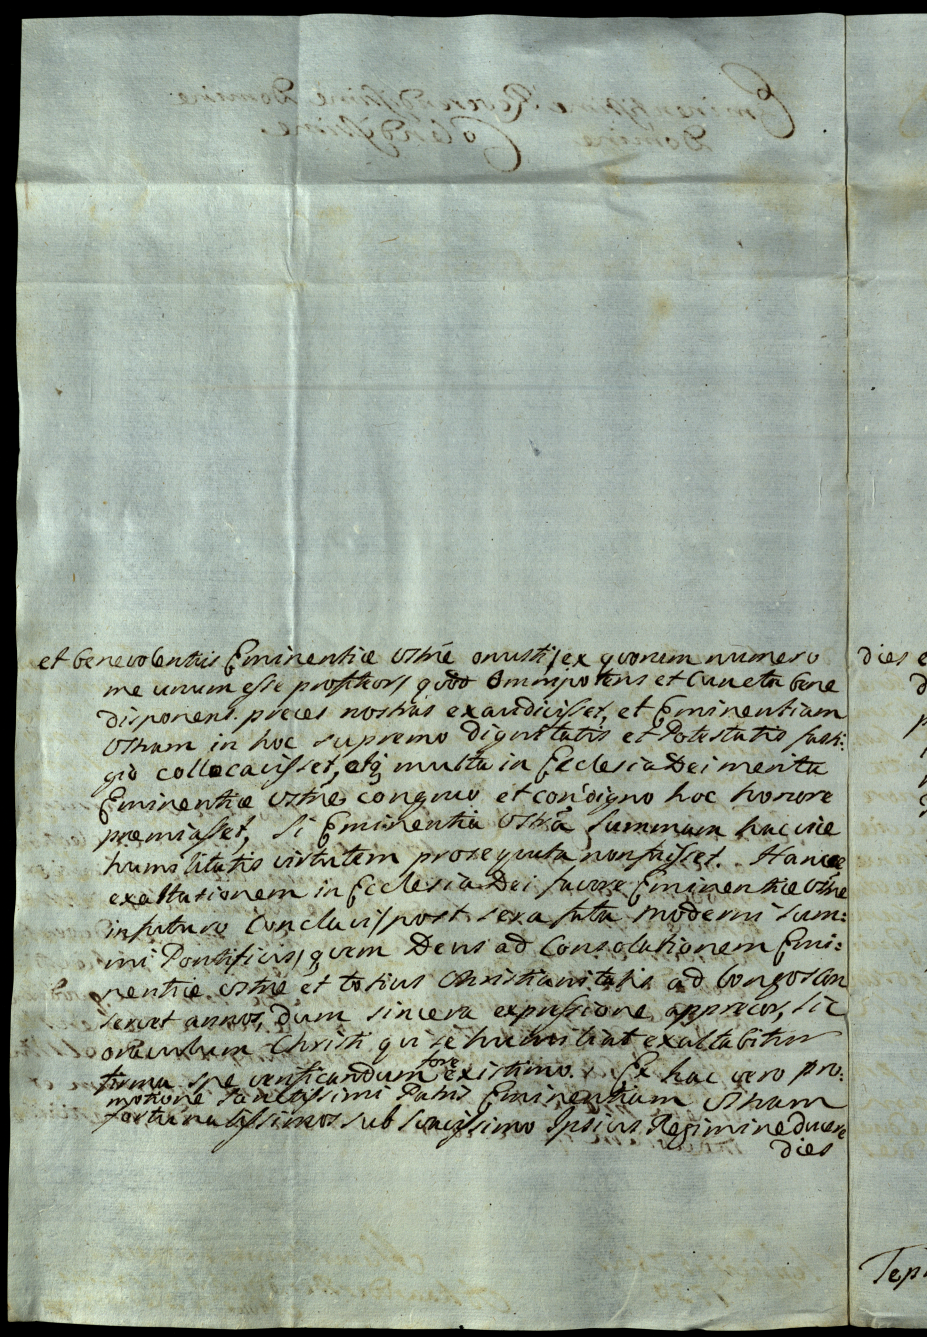 et benevolentiis Eminentiæ Vstræ onusti, ex quorum numero
me unum esse profiteor, quod Omnipotens et Cuncta bene
disponens preces nostras exaudivisset, et Eminentiam
Vstram in hoc supremo Dignitatis et Potestatis fasti:
gio collocavisset, etq multa in Ecclesia Dei merita
Eminentiæ Vstræ congruo et condigno hoc honore
premiasset, si Eminentia Vstra summam hac vice
humilitatis virtutem prosequuta non fuisset. Hance
exaltationem in Ecclesia Dei favore Eminentiæ Vstræ
in futuro Conclavi, post sera fata moderni Sum:
mi Pontificis, quem Deus ad Consolationem Emi:
nentiæ Vstræ et totius Christianitatis ad longos con
servet annos, dum sincera expressione apprecor, sic
oraculum Christi qui se humiliat exaltabitur
firma spe verificandum fore existimo. Ex hac vero pro:
motione Sanctissimi Patris Eminentiam Vstram
fortunatissimos sub Suavissimo Ipsius Regimine ducere
dies
dies
Tepl